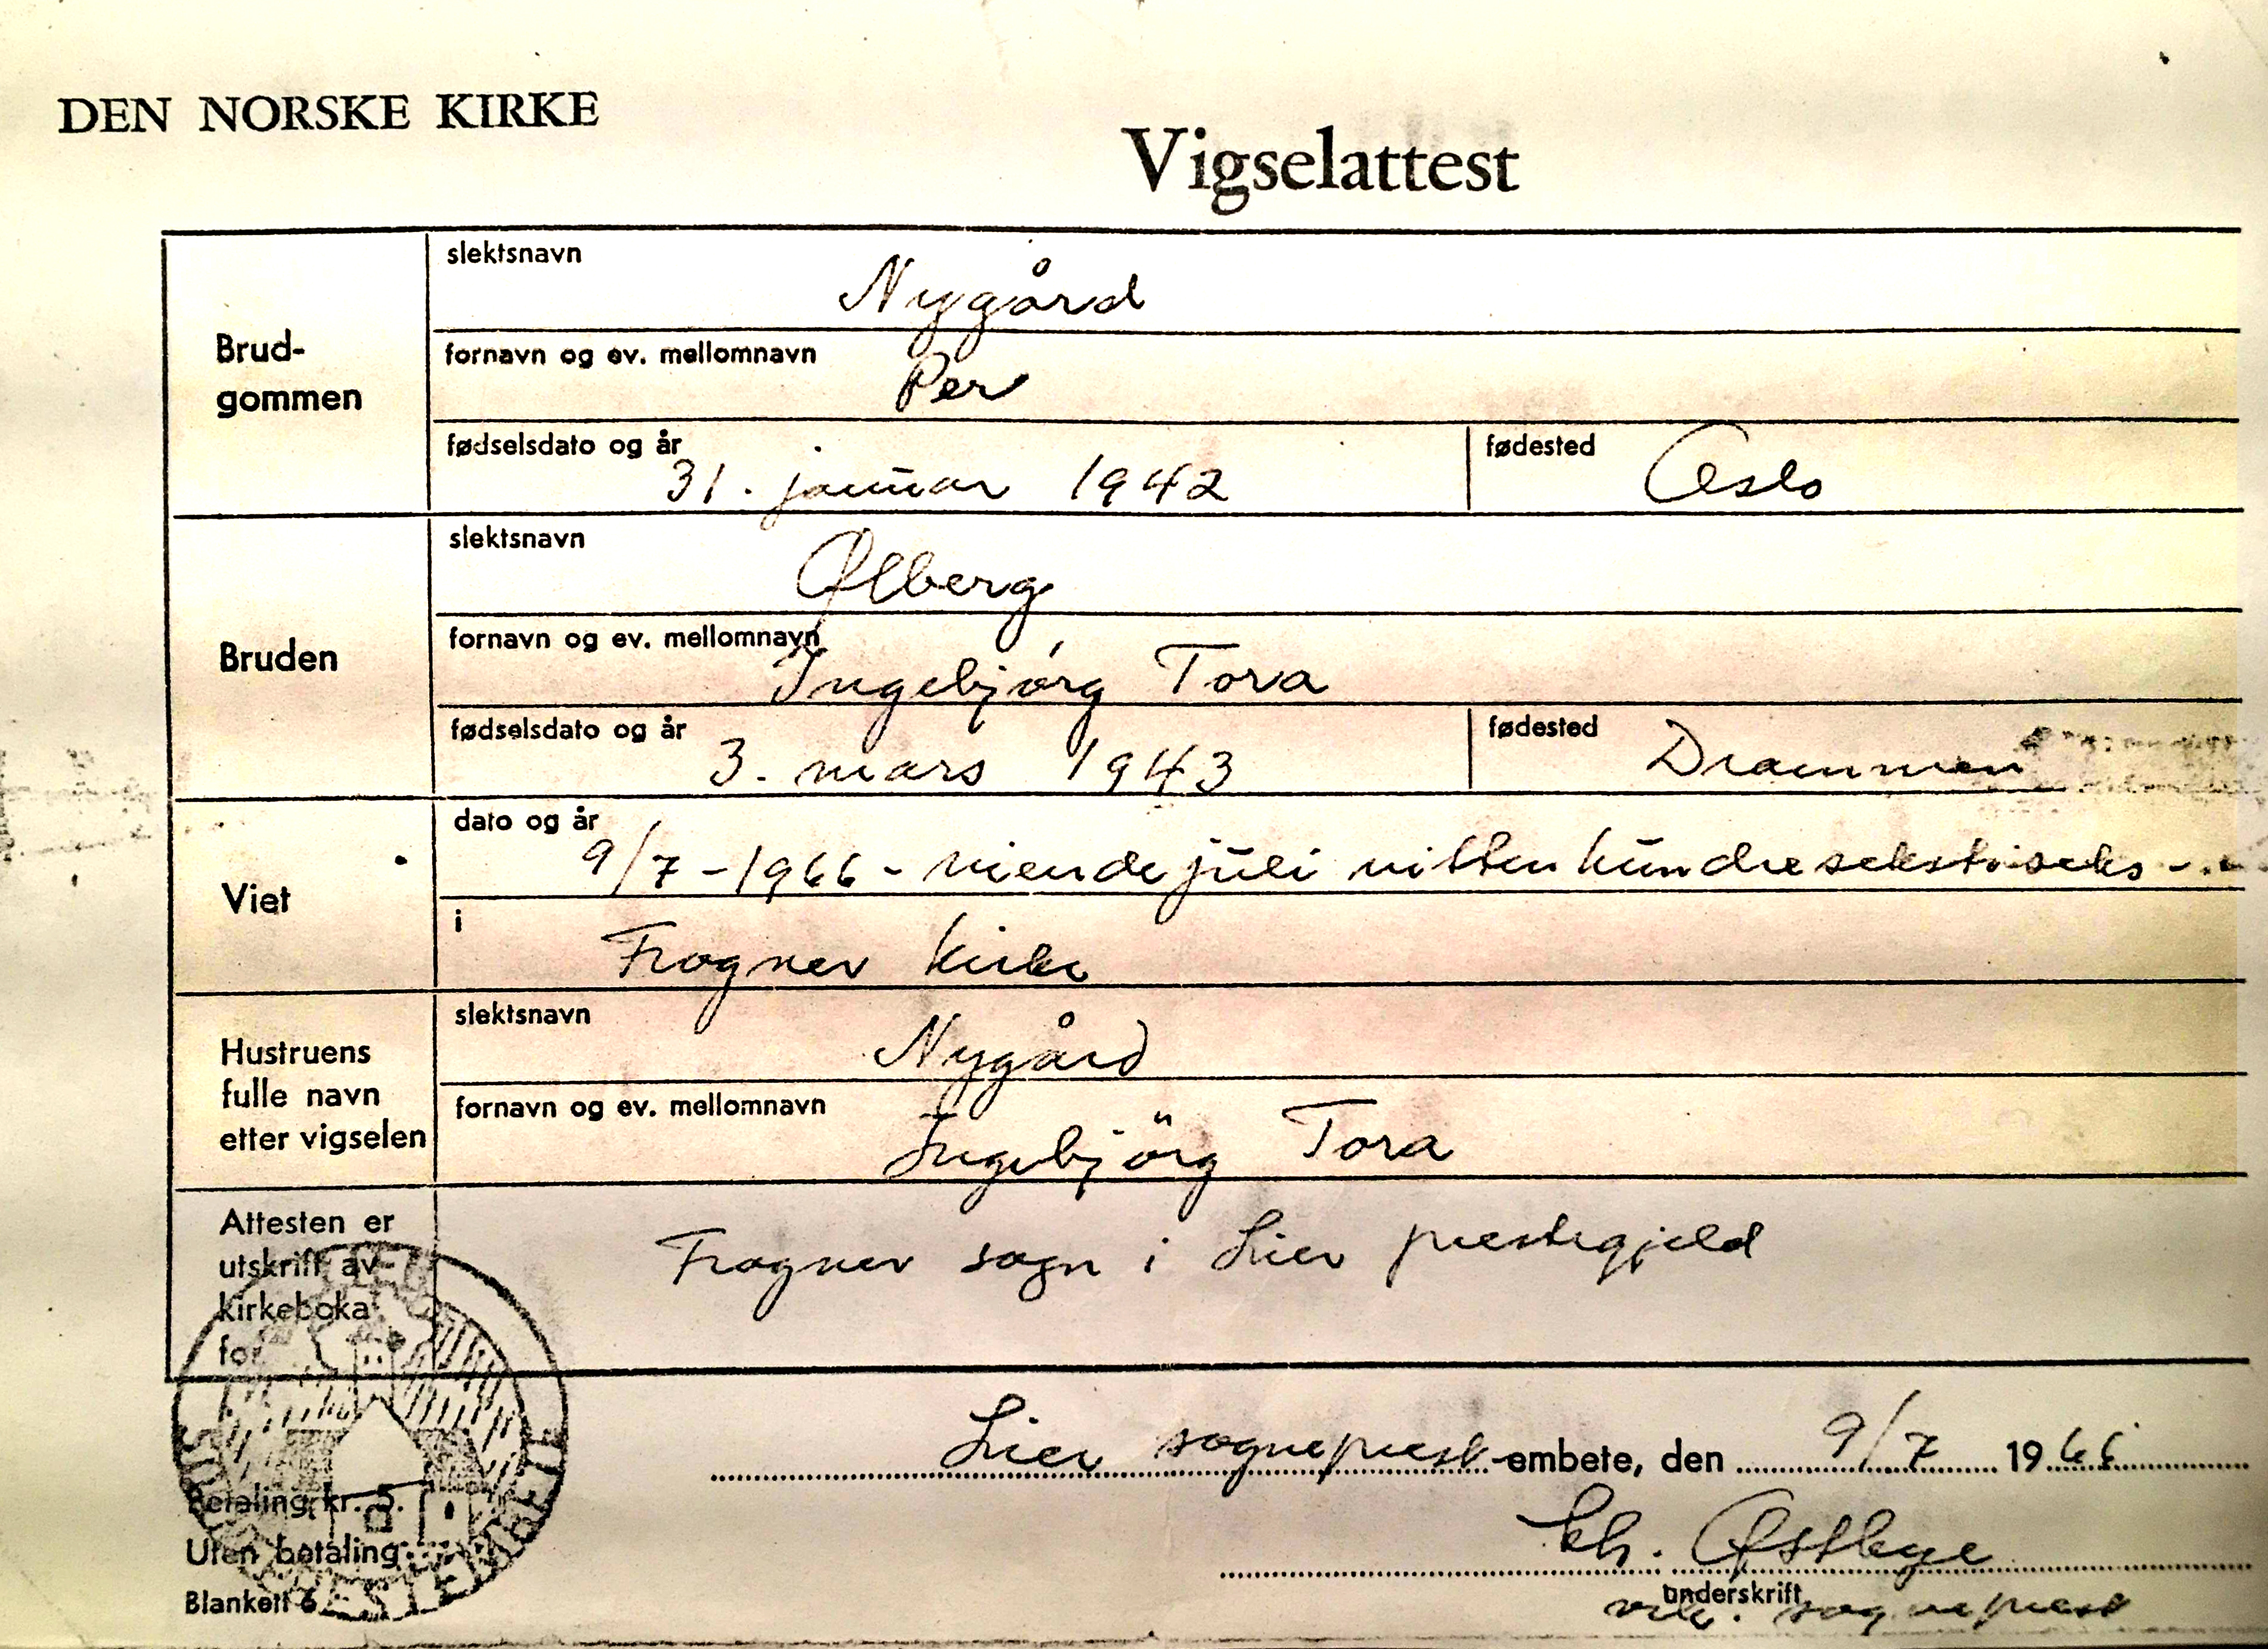 DEN NORSKE KIRKE
Vigselattest
Brud-
gommen
slektsnavn
Nygård
fornavn og ev. mellomnavn
Per
fødselsdato og år
31. januar 1942
fødested
Oslo
Bruden
slektsnavn
Ølberg
fornavn og ev. mellomnavn
Ingebjørg Tora
fødselsdato og år
3. mars 1943
fødested
Drammen
Viet
dato og år
9/7-1966 - niende juli nitten hundre sekstiseks -
i
Frogner kirke
Hustruens
fulle navn
etter vigselen
slektsnavn
Nygård
fornavn og ev. mellomnavn
Ingebjörg Tora
Attesten er
utskrift av
kirkeboka
for
Frogner sogn i Lier prestegjeld
Lier sogneprest-embete, den 9/7 1966
Kh. Østbye
underskrift
vik. sogneprest
Betaling kr. 5.
Uten betaling
Blankett 6